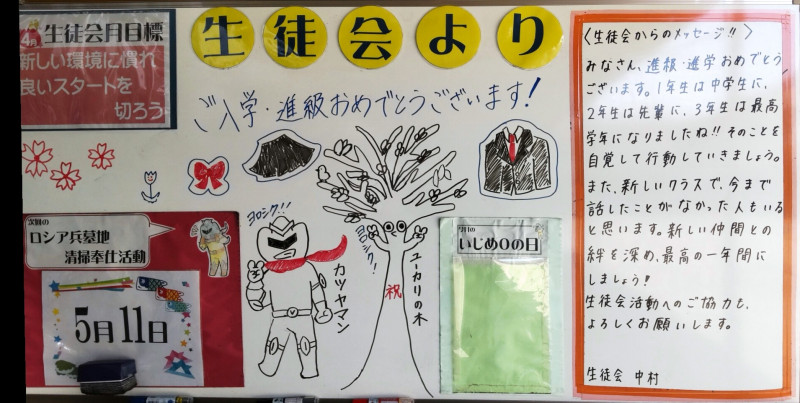 4月
生徒会月目標
新しい環境に慣れ
良いスタートを
切ろう
生徒会より
ご入学・進級おめでとうございます!
ヨロシク!!
カツヤマン
ヨロシク!
祝
ユーカリの木
次回の
ロシア兵墓地
清掃奉仕活動
5月11日
いじめ0の日
〈生徒会からのメッセージ!!〉
みなさん、進級・進学おめでとう
ございます。1年生は中学生に、
2年生は先輩に、3年生は最高
学年になりましたね!! そのことを
自覚して行動していきましょう。
また、新しいクラスで、今まで
話したことがなかった人もいる
と思います。新しい仲間との
絆を深め、最高の一年間に
しましょう!
生徒会活動へのご協力も、
よろしくお願いします。
生徒会 中村